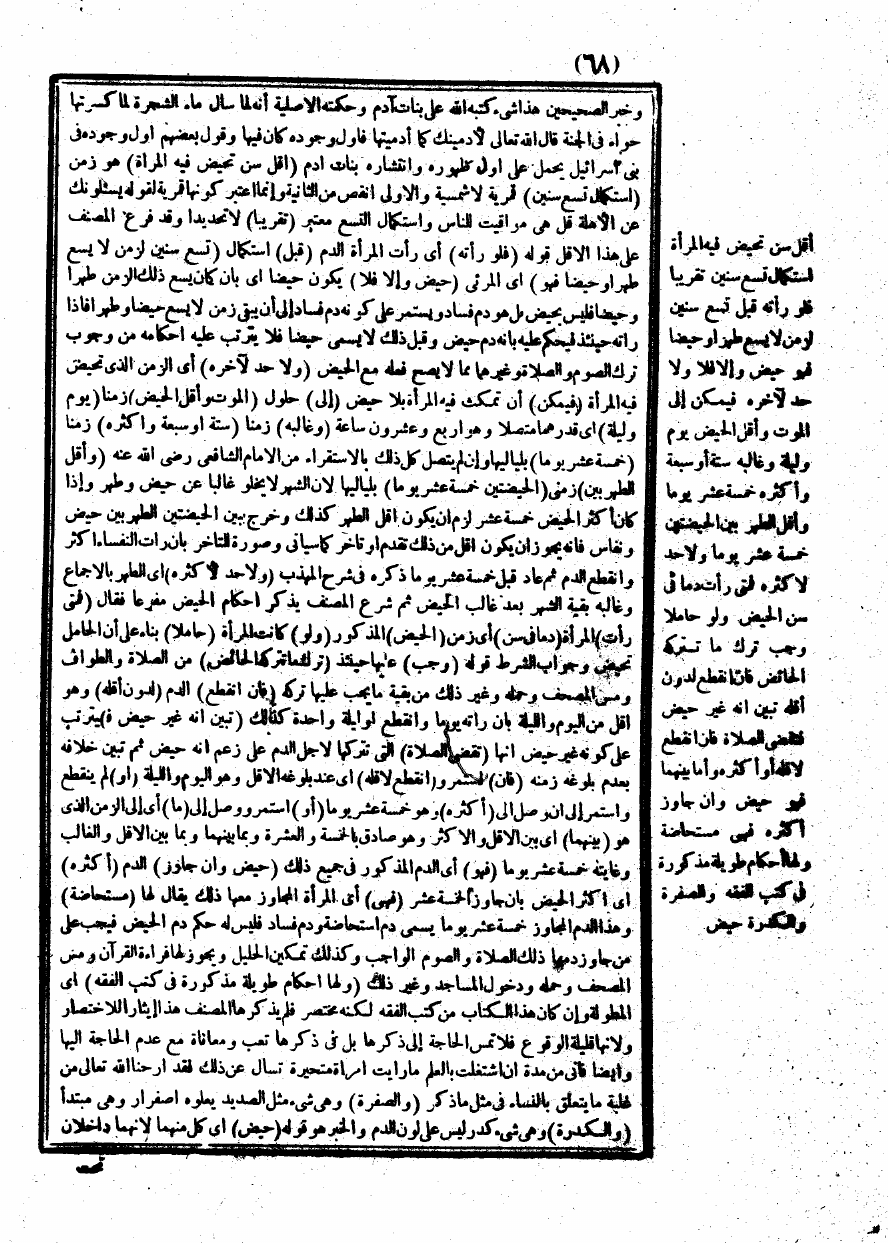 (٦٨)
وخبر الصحيحين هذا شىء كتبه الله على بنات آدم وحكمته الاصلية أنه لما سال ماء الشجرة لما كسرتها
حواء فى الجنة قال الله تعالى لأدمينك كما أدميتها فاول وجوده كان فيها وقول بعضهم اول وجوده فى
بنى اسرائيل يحمل على اول ظهوره وانتشاره بنات ادم (اقل سن تحيض فيه المرأة) هو زمن
(استكمال تسع سنين) قمرية لا شمسية والاولى انقص من الثانية وإنما اعتبر كونها قمرية لقوله يسئلونك
عن الأهلة قل هى مواقيت للناس واستكمال التسع معتبر (تقريبا) لا تحديدا وقد فرع المصنف
على هذا الاقل قوله (فلو رأته) أى رأت المرأة الدم (قبل) استكمال (تسع سنين لزمن لا يسع
طهرا وحيضا فهو) اى المرئى (حيض وإلا فلا) يكون حيضا اى بان كان يسع ذلك الزمن طهرا
وحيضا فليس بحيض بل هو دم فساد ويستمر على كونه دم فساد إلى أن يبقى زمن لا يسع حيضا وطهرا فاذا
راته حينئذ فيحكم عليه بانه دم حيض وقبل ذلك لا يسمى حيضا فلا يترتب عليه احكامه من وجوب
ترك الصوم والصلاة وغيرها مما لا يصح فعله مع الحيض (ولا حد لآخره) أى الزمن الذى تحيض
فيه المرأة (فيمكن) أن تمكث فيه المرأة بلا حيض (إلى) حلول (الموت وأقل الحيض) زمنا (يوم
وليلة) اى قدرهما متصلا وهو اربع وعشرون ساعة (وغالبه) زمنا (ستة او سبعة واكثره) زمنا
(خمسة عشر يوما) بلياليها وإن لم يتصل كل ذلك بالاستقراء من الامام الشافعى رضى الله عنه (وأقل
الطهر بين) زمنى (الحيضتين خمسة عشر يوما) بلياليها لان الشهر لا يخلو غالبا عن حيض وطهر وإذا
كان أكثر الحيض خمسة عشر لزم ان يكون اقل الطهر كذلك وخرج ببين الحيضتين الطهر بين حيض
ونفاس فانه يجوز ان يكون اقل من ذلك تقدم او تاخر كما سياتى وصورة التاخر بان رات النفساء اكثر
وانقطع الدم ثم عاد قبل خمسة عشر يوما ذكره فى شرح المهذب (ولا حد لأكثره) اى الطهر بالاجماع
وغالبه بقية الشهر بعد غالب الحيض ثم شرع المصنف يذكر احكام الحيض مفرعا فقال (فمتى
رأت) المرأة (دما فى سن) أى زمن (الحيض) المذكور (ولو) كانت المرأة (حاملا) بناء على أن الحامل
تحيض وجواب الشرط قوله (وجب) عليها حينئذ (ترك ما تركه الحائض) من الصلاة والطواف
ومس المصحف وحمله وغير ذلك من بقية ما يجب عليها تركه (فان انقطع) الدم (لدون أقله) وهو
اقل من اليوم والليلة بان راته يوما وانقطع او ليلة واحدة كذلك (تبين انه غير حيض ف) يترتب
على كونه غير حيض انها (تقضى الصلاة) التى تركها لاجل الدم على زعم انه حيض ثم تبين خلافه
بعدم بلوغه زمنه (فان) استمر و(انقطع لاقله) اى عند بلوغه الاقل وهو اليوم والليلة (او) لم ينقطع
واستمر إلى ان وصل الى (أكثره) وهو خمسة عشر يوما (أو) استمر ووصل إلى (ما) أى إلى الزمن الذى
هو (بينهما) اى بين الاقل والاكثر وهو صادق بالخمسة والعشرة وبما بينهما وبما بين الاقل والغالب
وغايته خمسة عشر يوما (فهو) أى الدم المذكور فى جميع ذلك (حيض وان جاوز) الدم (أكثره)
اى اكثر الحيض بان جاوز الخمسة عشر (فهى) أى المرأة المجاوز معها ذلك يقال لها (مستحاضة)
وهذا الدم المجاوز خمسة عشر يوما يسمى دم استحاضة ودم فساد فليس له حكم دم الحيض فيجب على
من جاوز دمها ذلك الصلاة والصوم الواجب وكذلك تمكين الحليل ويجوز لها قراءة القرآن ومس
المصحف وحمله ودخول المساجد وغير ذلك (ولها احكام طويلة مذكورة فى كتب الفقه) اى
المطولة وإن كان هذا الكتاب من كتب الفقه لكنه مختصر فلم يذكرها المصنف هذا إيثارا للاختصار
ولانها قليلة الوقوع فلا تمس الحاجة إلى ذكرها بل فى ذكرها تعب ومعاناة مع عدم الحاجة اليها
وايضا فانى من مدة ان اشتغلت بالعلم ما رايت امراة متحيرة تسال عن ذلك فقد ارحنا الله تعالى من
غلبة ما يتعلق بالنساء فى مثل ماذكر (والصفرة) وهى شىء مثل الصديد يعلوه اصفرار وهى مبتدأ
(والكدرة) وهى شىء كدر ليس على لون الدم والخبر هو قوله (حيض) اى كل منهما لانهما داخلان
أقل سن تحيض فيه المرأة
استكمال تسع سنين تقريبا
فلو رأته قبل تسع سنين
لزمن لا يسع طهرا وحيضا
فهو حيض وإلا فلا ولا
حد لآخره فيمكن إلى
الموت وأقل الحيض يوم
وليلة وغالبه ستة أو سبعة
وأكثره خمسة عشر يوما
وأقل الطهر بين الحيضتين
خمسة عشر يوما ولا حد
لاكثره فمتى رأت دما فى
سن الحيض ولو حاملا
وجب ترك ما تتركه
الحائض فان انقطع لدون
أقله تبين انه غير حيض
فتقضى الصلاة فان انقطع
لاقله أو أكثره وأما بينهما
فهو حيض وان جاوز
أكثره فهى مستحاضة
ولها أحكام طويلة مذكورة
فى كتب الفقه والصفرة
والكدرة حيض